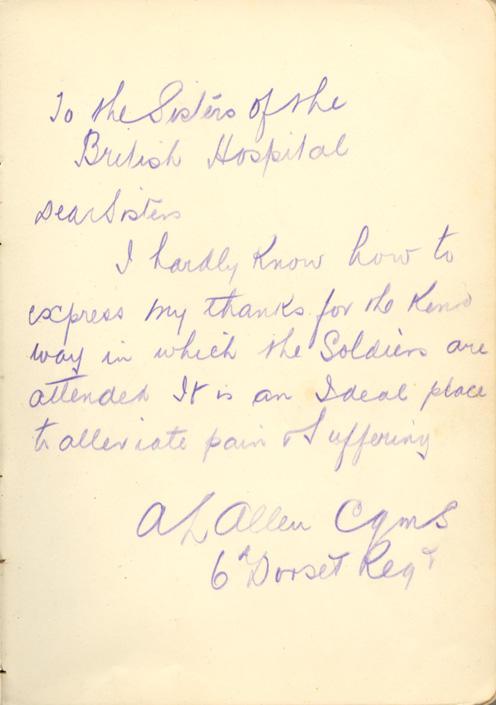 To the Sisters of the
British Hospital
Dear Sisters
I hardly know how to
express my thanks for the kind
way in which the Soldiers are
attended It is an Ideal place
to alleviate pain & Suffering
A L Allen Cqms
6th Dorset Regt